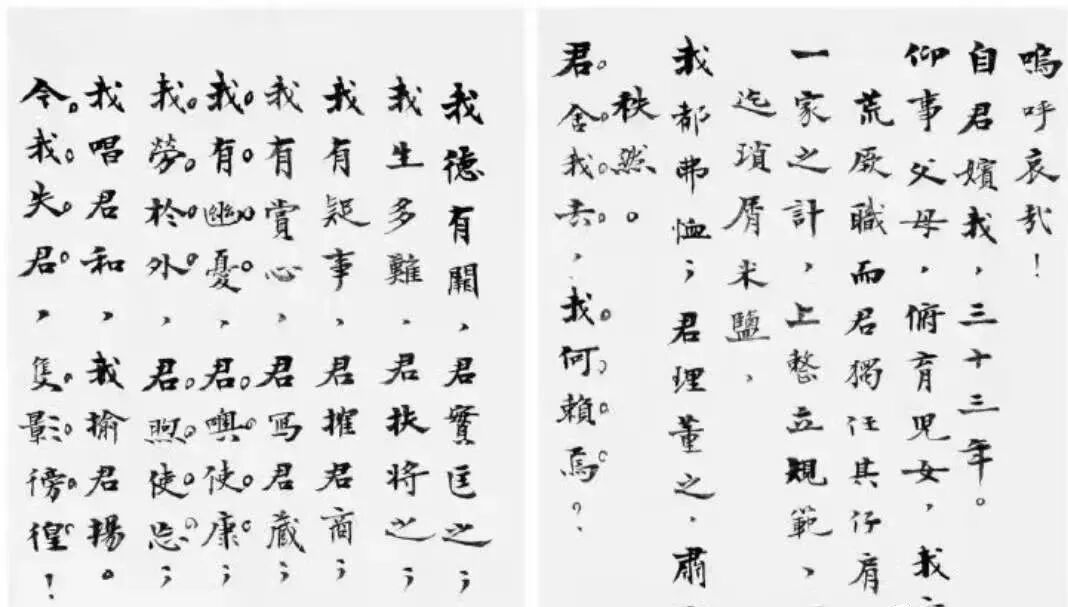 嗚呼哀哉！
自君嬪我，三十三年。
仰事父母，俯育兒女，我
荒厥職而君獨任其仔肩。
一家之計，上整立規範，
迄瑣屑米鹽，
我都弗恤；君理董之，肅
秩然。
君舍我去，我何賴焉？
我德有闕，君實匡之；
我生多難，君扶將之；
我有疑事，君搉君商；
我有賞心，君寫君藏；
我有幽憂，君噢使康；
我勞於外，君煦使忘；
我唱君和，我揄君揚。
今我失君，隻影徬徨！